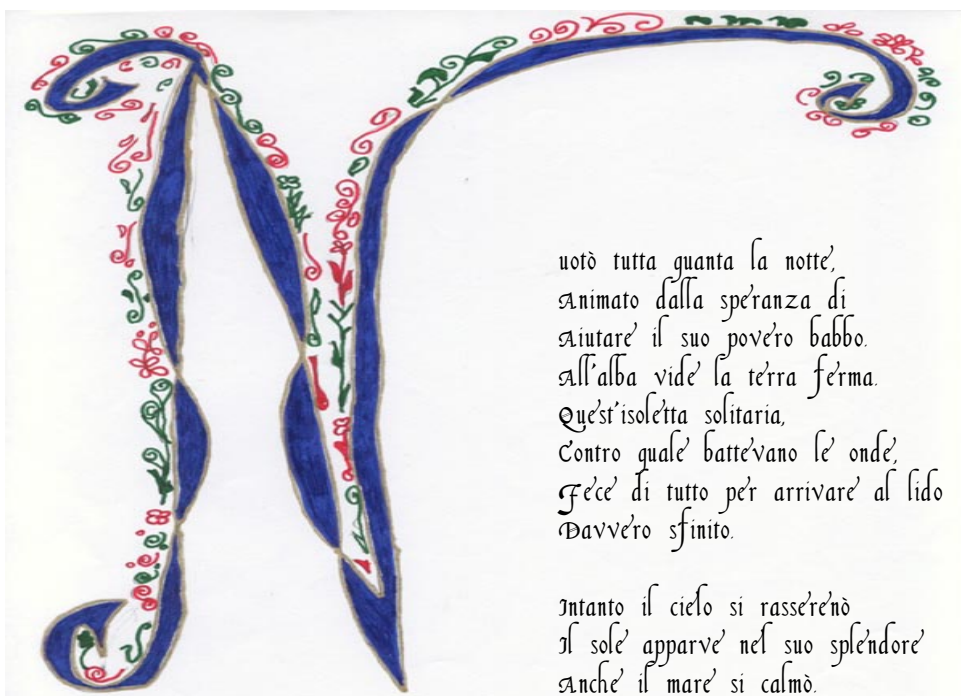 N
uotò tutta quanta la notte,
Animato dalla speranza di
Aiutare il suo povero babbo.
All'alba vide la terra ferma.
Quest'isoletta solitaria,
Contro quale battevano le onde,
Fece di tutto per arrivare al lido
Davvero sfinito.
Intanto il cielo si rasserenò
Il sole apparve nel suo splendore
Anche il mare si calmò.